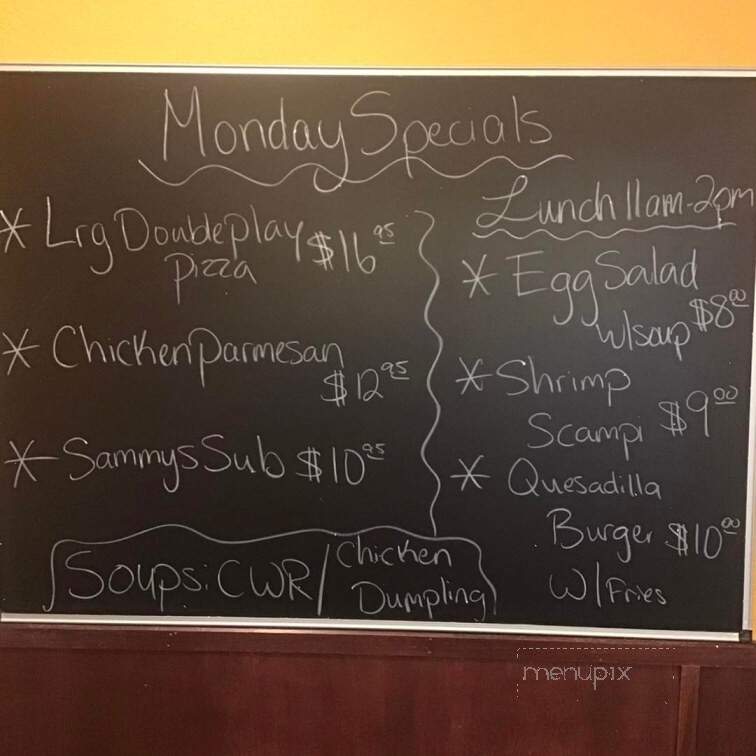 Monday Specials
* Lrg Doubleplay
Pizza $16.95
* Chicken Parmesan
$12.95
* Sammys Sub $10.95
Lunch 11am-2pm
* Egg Salad
W/soup $8.00
* Shrimp
Scampi $9.00
* Quesadilla
Burger $10.00
W/Fries
Soups: CWR/Chicken
Dumpling
menupix